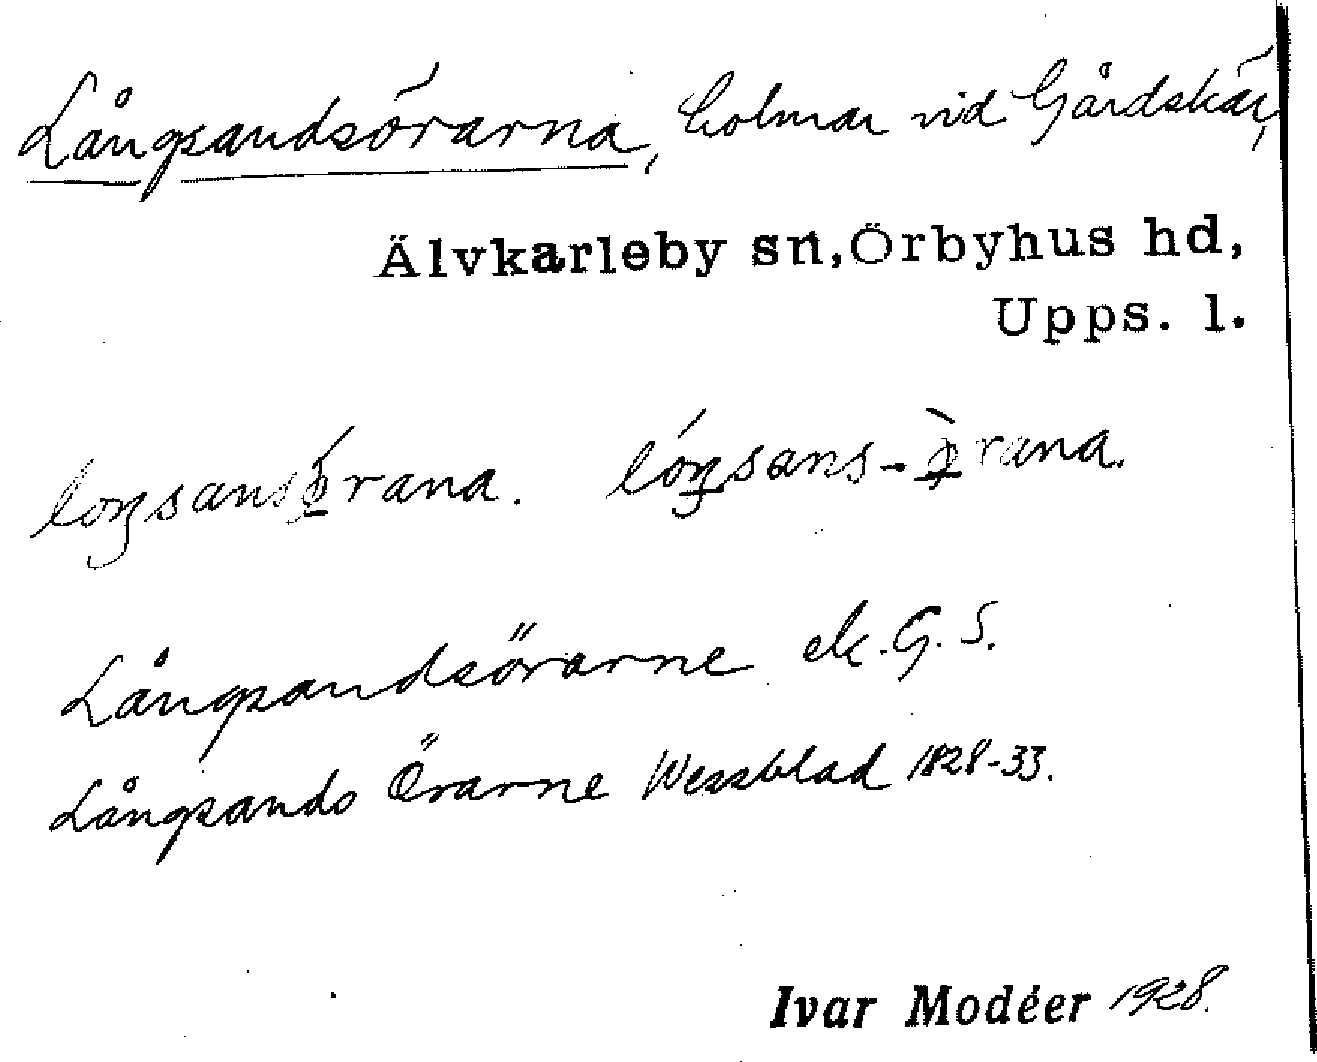 Långsandsörarna, holmar vid Gårdskär,
Älvkarleby sn, Örbyhus hd,
Upps. l.
loŋsansørana. lóŋsans-ø̀rana.
Långsandsörarne ek. G. S.
Långsands Örarne Wessblad 1828-33.
Ivar Modéer 1928.